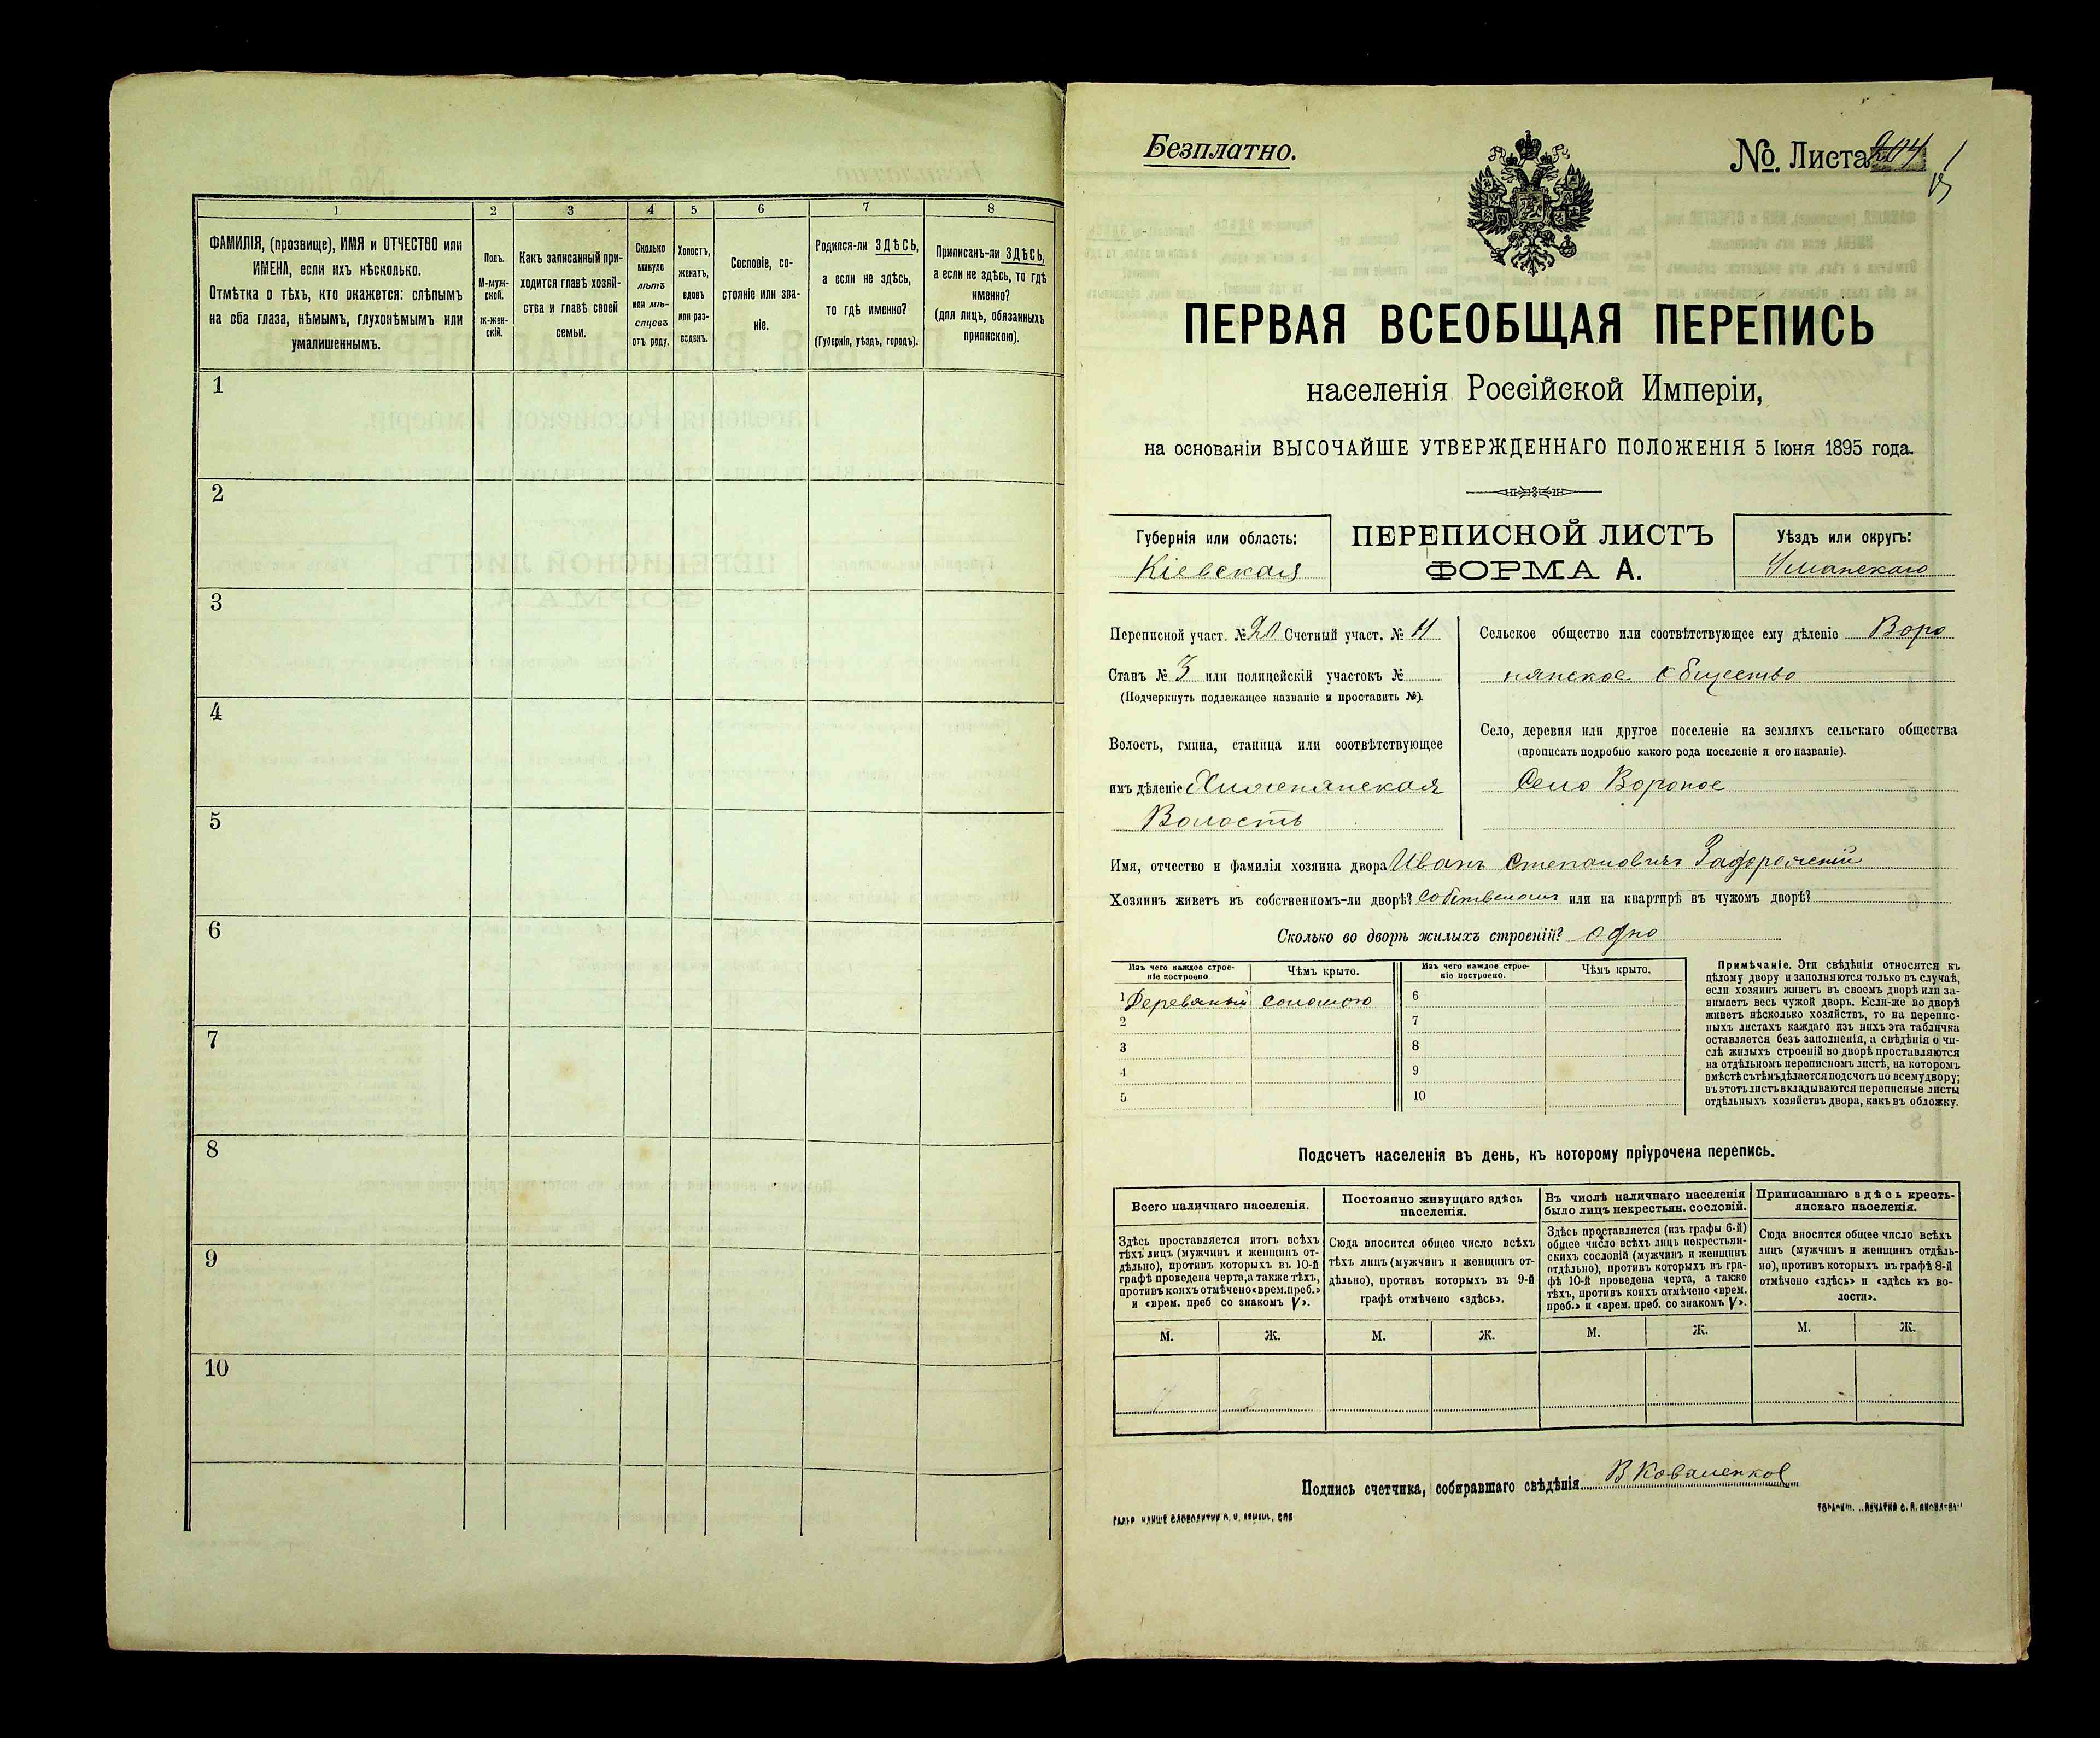 1
2
3
4
5
6
7
8
ФАМИЛІЯ, (прозвище), ИМЯ и ОТЧЕСТВО или
ИМЕНА, если ихъ нѣсколько.
Отмѣтка о тѣхъ, кто окажется: слѣпымъ
на оба глаза, нѣмымъ, глухонѣмымъ или
умалишеннымъ.
Полъ.
М-муж-
ской.
Ж-жен-
скій.
Какъ записанный при-
ходится главѣ хозяй-
ства и главѣ своей
семьи.
Сколько
минуло
лѣтъ
или мѣ-
сяцевъ
отъ роду.
Холостъ,
женатъ,
вдовъ
или раз-
веденъ.
Сословіе, со-
стояніе или зва-
ніе.
Родился-ли ЗДѢСЬ,
а если не здѣсь,
то гдѣ именно?
(Губернія, уѣздъ, городъ).
Приписанъ-ли ЗДѢСЬ,
а если не здѣсь, то гдѣ
именно?
(для лицъ, обязанныхъ
припискою).
1
2
3
4
5
6
7
8
9
10
Безплатно.
№. Листа 204
ПЕРВАЯ ВСЕОБЩАЯ ПЕРЕПИСЬ
населенія Россійской Имперіи,
на основаніи ВЫСОЧАЙШЕ УТВЕРЖДЕННАГО ПОЛОЖЕНІЯ 5 Іюня 1895 года.
Губернія или область:
Кіевская
ПЕРЕПИСНОЙ ЛИСТЪ
ФОРМА А.
Уѣздъ или округъ:
Уманскаго
Переписной участ. № 20 Счетный участ. № 11
Станъ № 3 или полицейскій участокъ №
(Подчеркнуть подлежащее названіе и проставить №).
Волость, гмина, станица или соотвѣтствующее
имъ дѣленіе
Волость
Сельское общество или соотвѣтствующее ему дѣленіе Воро
нянское общество
Село, деревня или другое поселеніе на земляхъ сельскаго общества
(прописать подробно какого рода поселеніе и его названіе).
Село Вороное
Имя, отчество и фамилія хозяина двора Иванъ Степановичъ
Хозяинъ живетъ въ собственномъ-ли дворѣ? собственомъ или на квартирѣ въ чужомъ дворѣ?
Сколько во дворѣ жилыхъ строеній? одно
Изъ чего каждое строе-
ніе построено
Чѣмъ крыто.
Изъ чего каждое строе-
ніе построено.
Чѣмъ крыто.
1 Деревяный соломою
2
3
4
5
6
7
8
9
10
Примѣчаніе. Эти свѣдѣнія относятся къ
цѣлому двору и заполняются только въ случаѣ,
если хозяинъ живетъ въ своемъ дворѣ или за-
нимаетъ весь чужой дворъ. Если-же во дворѣ
живетъ нѣсколько хозяйствъ, то на перепис-
ныхъ листахъ каждаго изъ нихъ эта табличка
оставляется безъ заполненія, а свѣдѣнія о чи-
слѣ жилыхъ строеній во дворѣ проставляются
на отдѣльномъ переписномъ листѣ, на которомъ
вмѣстѣ съ тѣмъ дѣлается подсчетъ по всему двору;
въ этотъ листъ вкладываются переписные листы
отдѣльныхъ хозяйствъ двора, какъ въ обложку.
Подсчетъ населенія въ день, къ которому пріурочена перепись.
Всего наличнаго населенія.
Здѣсь проставляется итогъ всѣхъ
тѣхъ лицъ (мужчинъ и женщинъ от-
дѣльно), противъ которыхъ въ 10-й
графѣ проведена черта, а также тѣхъ,
противъ коихъ отмѣчено «врем. преб.»
и «врем. преб со знакомъ V».
Постоянно живущаго здѣсь
населенія.
Сюда вносится общее число всѣхъ
тѣхъ лицъ (мужчинъ и женщинъ от-
дѣльно), противъ которыхъ въ 9-й
графѣ отмѣчено «здѣсь».
Въ числѣ наличнаго населенія
было лицъ некрестьян. сословій.
Здѣсь проставляется (изъ графы 6-й)
общее число всѣхъ лицъ некрестьян-
скихъ сословій (мужчинъ и женщинъ
отдѣльно), противъ которыхъ въ гра-
фѣ 10-й проведена черта, а также
тѣхъ, противъ коихъ отмѣчено «врем.
преб.» и «врем. преб. со знакомъ V».
Приписаннаго здѣсь кресть-
янскаго населенія.
Сюда вносится общее число всѣхъ
лицъ (мужчинъ и женщинъ отдѣль-
но), противъ которыхъ въ графѣ 8-й
отмѣчено «здѣсь» и «здѣсь къ во-
лости».
М. Ж. М. Ж. М. Ж. М. Ж.
Подпись счетчика, собиравшаго свѣдѣнія В Коваленков